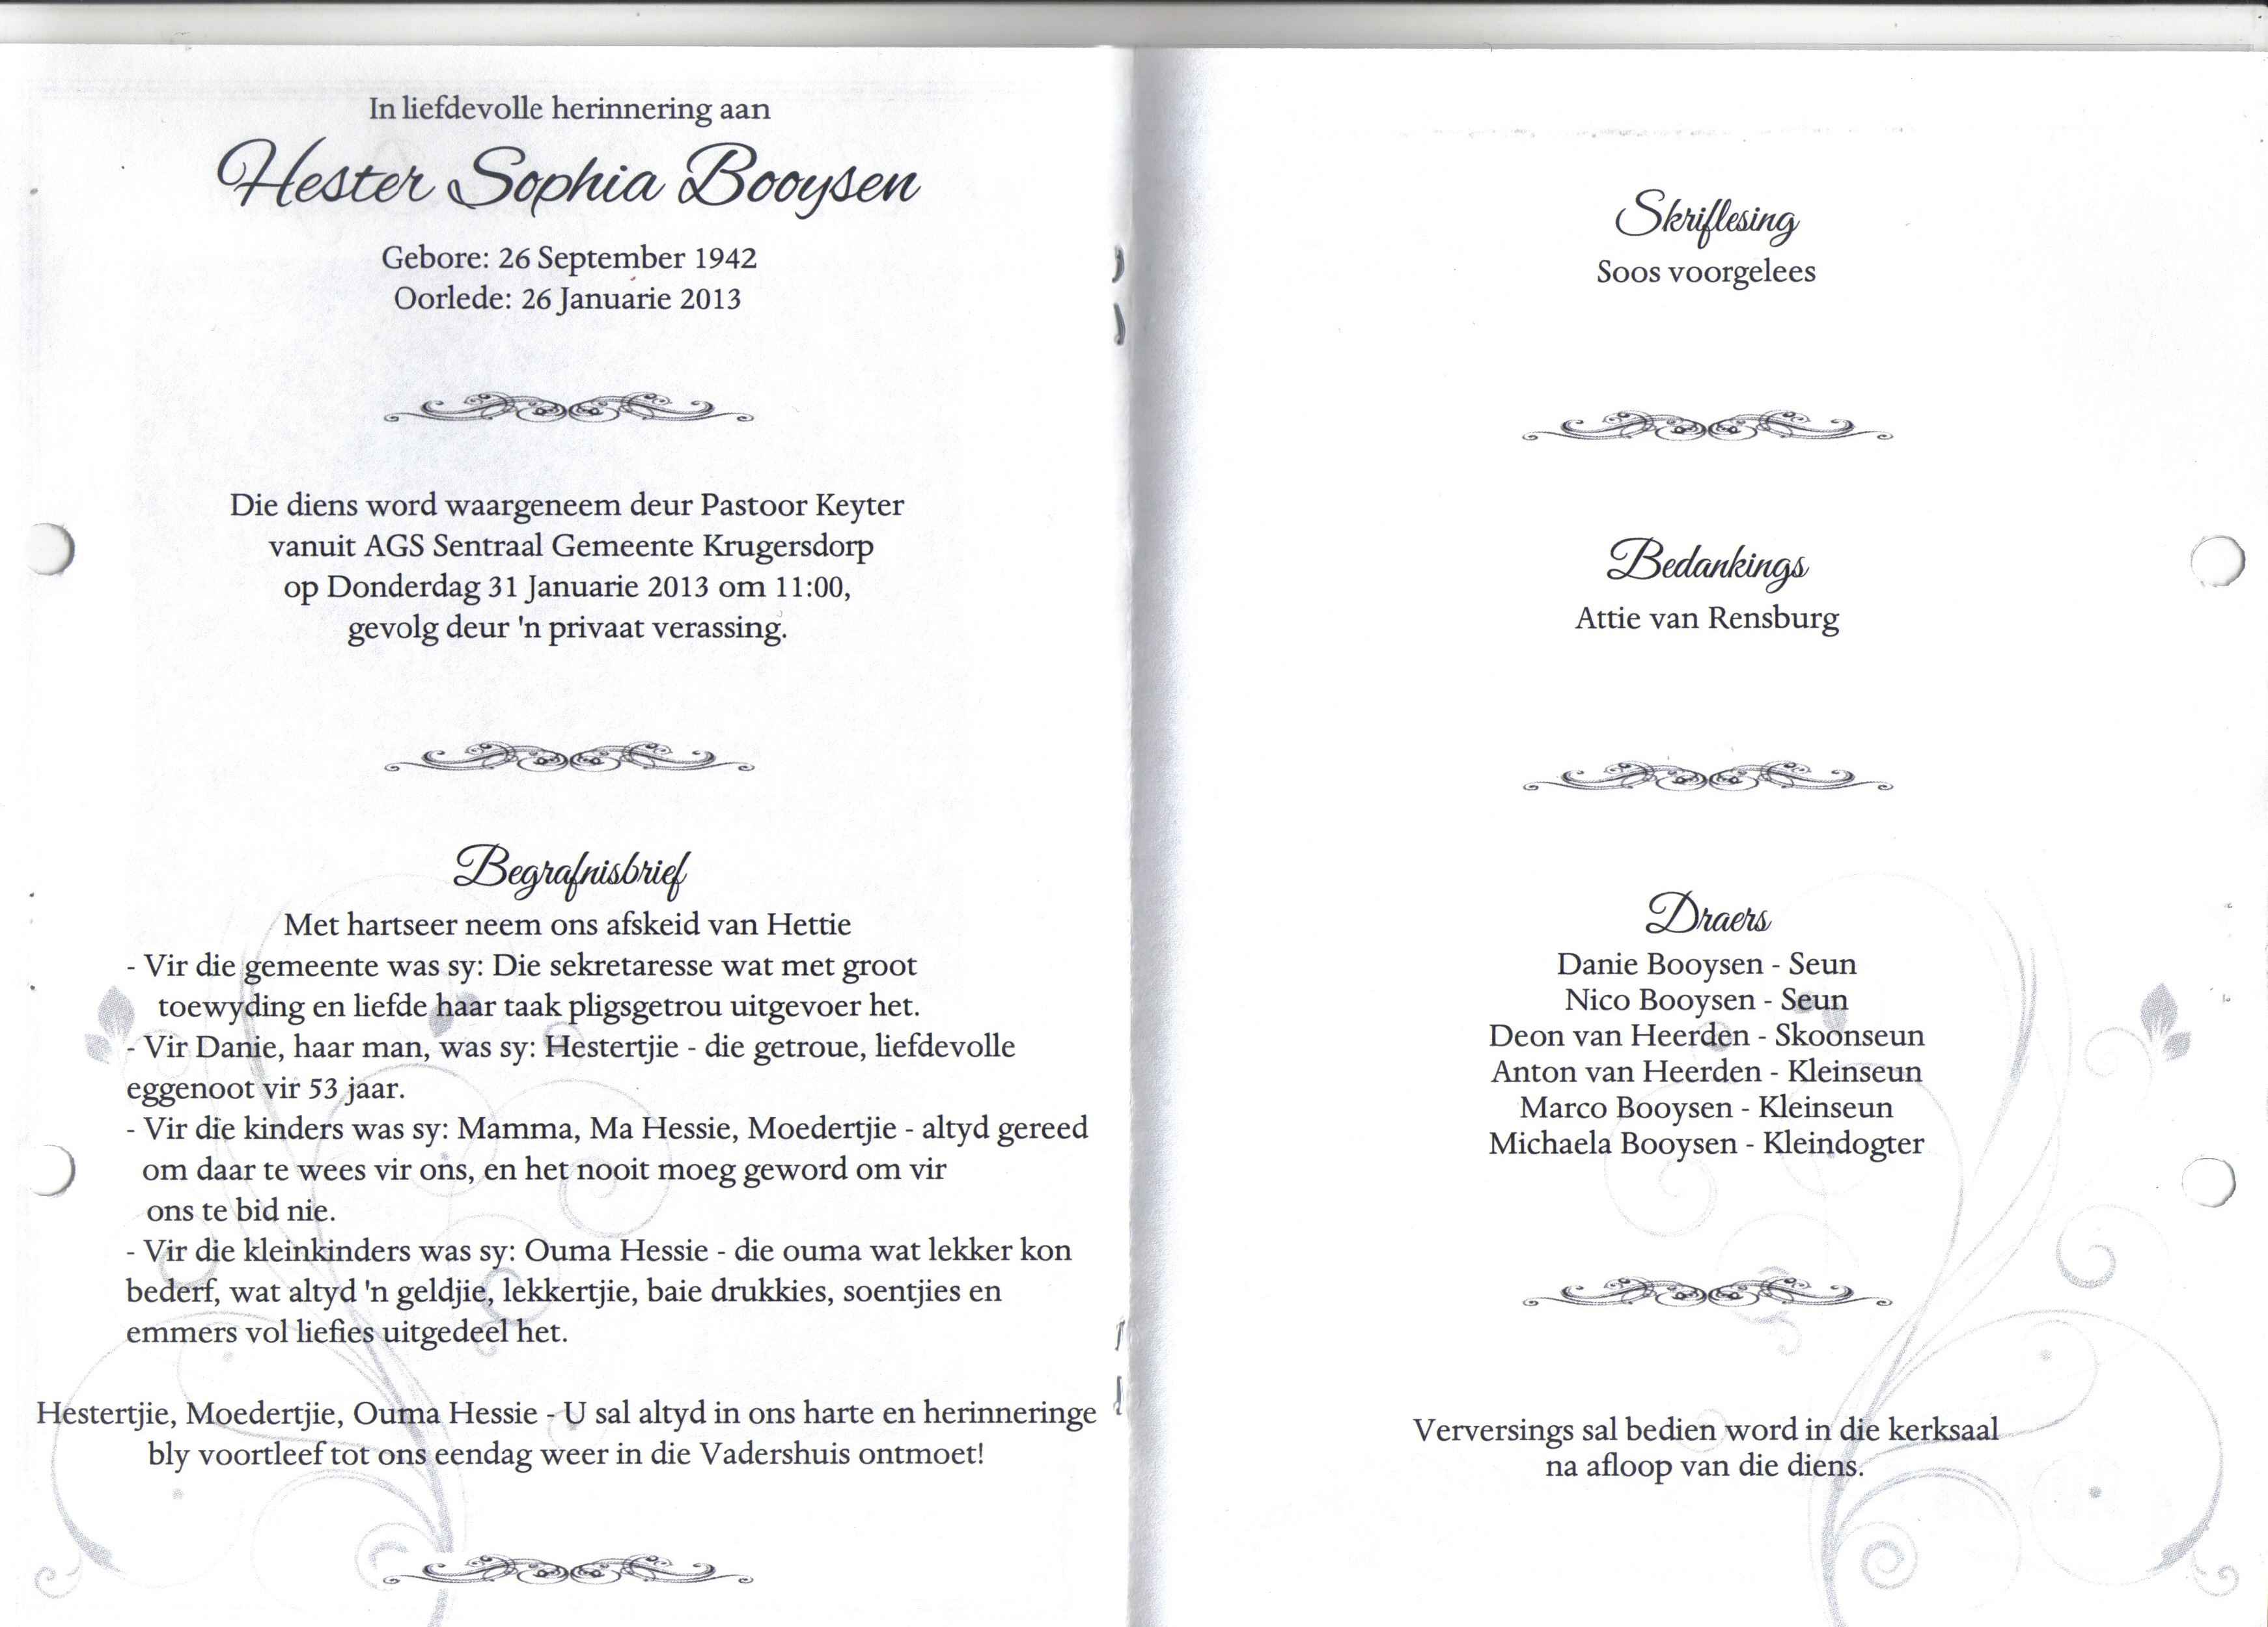 In liefdevolle herinnering aan
Hester Sophia Booysen
Gebore: 26 September 1942
Oorlede: 26 Januarie 2013
Die diens word waargeneem deur Pastoor Keyter
vanuit AGS Sentraal Gemeente Krugersdorp
op Donderdag 31 Januarie 2013 om 11:00,
gevolg deur 'n privaat verassing.
Begrafnisbrief
Met hartseer neem ons afskeid van Hettie
- Vir die gemeente was sy: Die sekretaresse wat met groot
toewyding en liefde haar taak pligsgetrou uitgevoer het.
- Vir Danie, haar man, was sy: Hestertjie - die getroue, liefdevolle
eggenoot vir 53 jaar.
- Vir die kinders was sy: Mamma, Ma Hessie, Moedertjie - altyd gereed
om daar te wees vir ons, en het nooit moeg geword om vir
ons te bid nie.
- Vir die kleinkinders was sy: Ouma Hessie - die ouma wat lekker kon
bederf, wat altyd 'n geldjie, lekkertjie, baie drukkies, soentjies en
emmers vol liefies uitgedeel het.
Hestertjie, Moedertjie, Ouma Hessie - U sal altyd in ons harte en herinneringe
bly voortleef tot ons eendag weer in die Vadershuis ontmoet!
Skriflesing
Soos voorgelees
Bedankings
Attie van Rensburg
Draers
Danie Booysen - Seun
Nico Booysen - Seun
Deon van Heerden - Skoonseun
Anton van Heerden - Kleinseun
Marco Booysen - Kleinseun
Michaela Booysen - Kleindogter
Verversings sal bedien word in die kerksaal
na afloop van die diens.